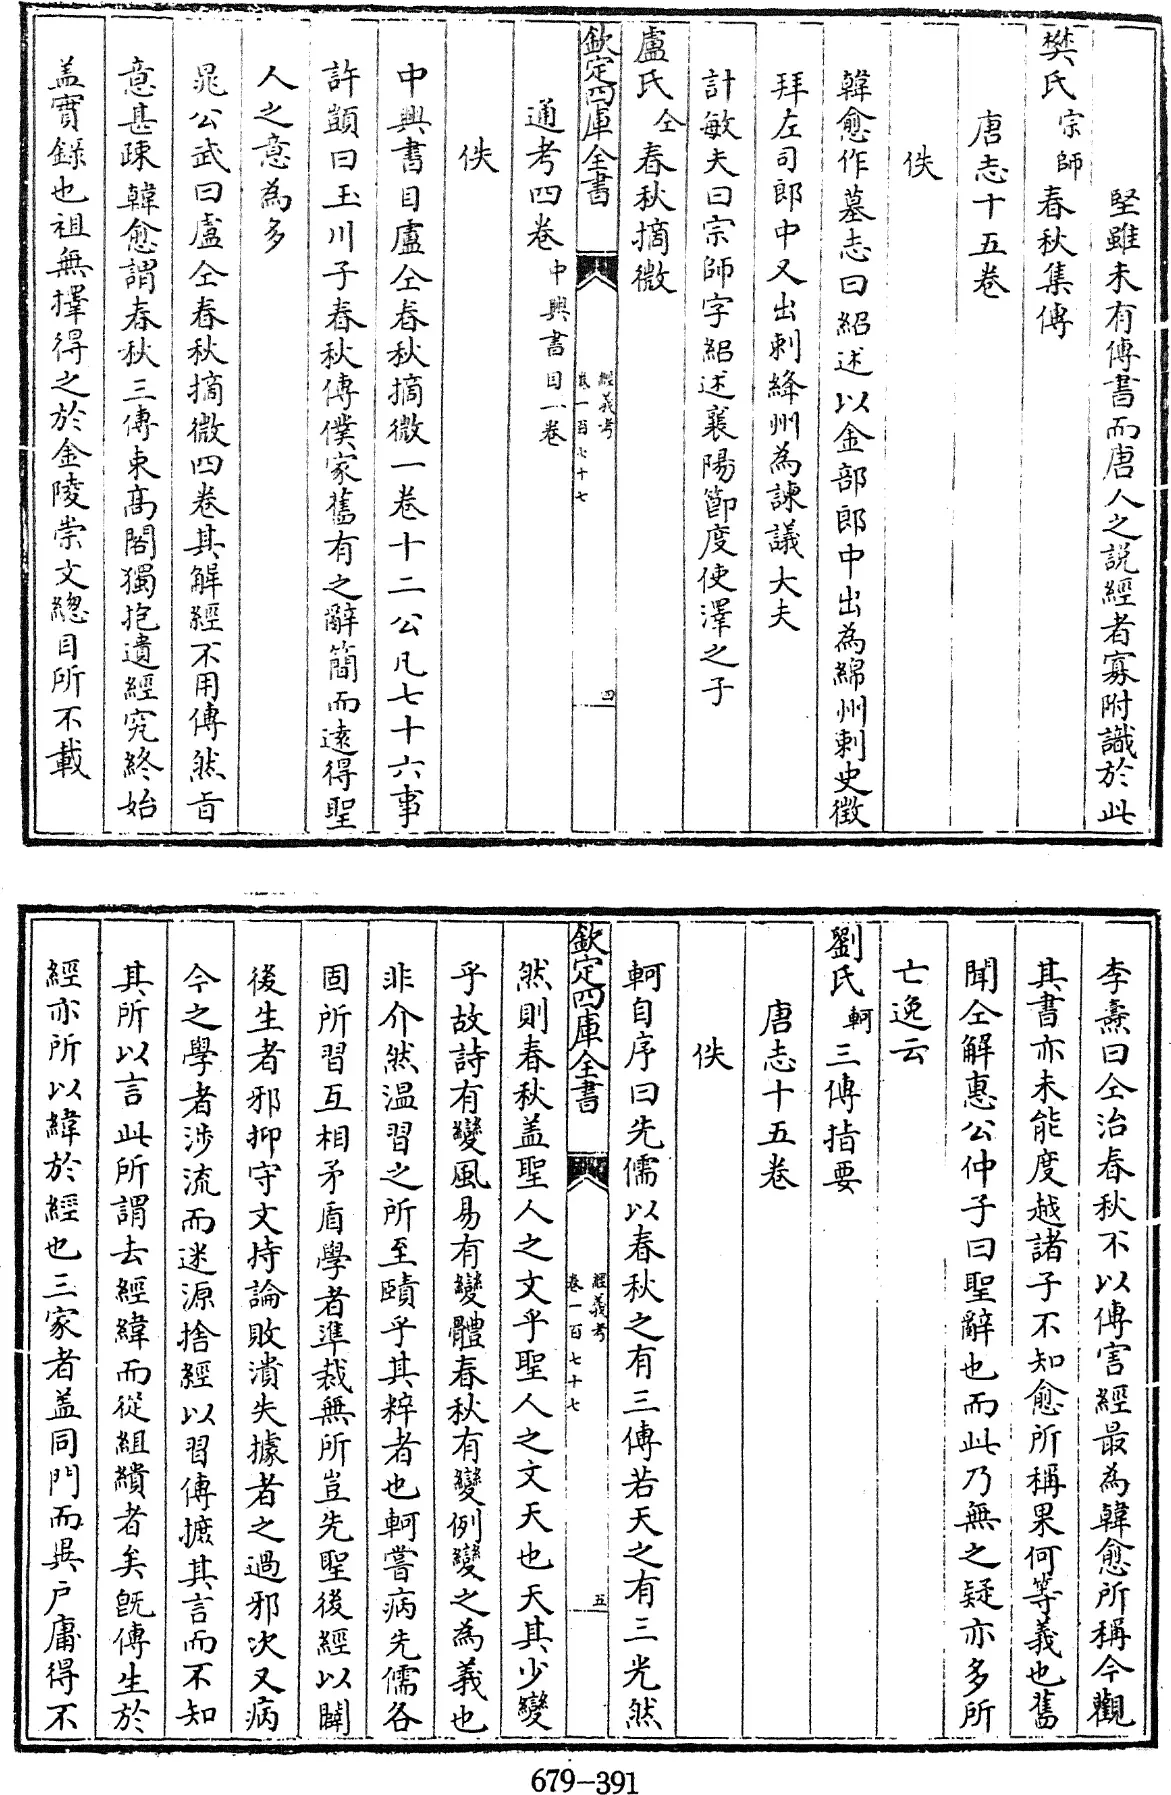 堅雖未有傳書而唐人之説經者寡附識於此
樊氏宗師春秋集傳
唐志十五卷
佚
韓愈作墓志曰紹述以金部郎中出為綿州刺史徵
拜左司郎中又出刺絳州為諫議大夫
計敏夫曰宗師字紹述襄陽節度使澤之子
盧氏仝春秋摘微
欽定四庫全書
經義考
卷一百七十七
四
通考四卷中興書目一卷
佚
中興書目盧仝春秋摘微一卷十二公凡七十六事
許顗曰玉川子春秋傳僕家舊有之辭簡而遠得聖
人之意為多
晁公武曰盧仝春秋摘微四卷其解經不用傳然旨
意甚疎韓愈謂春秋三傳束高閣獨抱遺經究終始
盖實錄也祖無擇得之於金陵崇文總目所不載
李燾曰仝治春秋不以傳害經最為韓愈所稱今觀
其書亦未能度越諸子不知愈所稱果何等義也舊
聞仝解惠公仲子曰聖辭也而此乃無之疑亦多所
亡逸云
劉氏軻三傳指要
唐志十五卷
佚
軻自序曰先儒以春秋之有三傳若天之有三光然
欽定四庫全書
經義考
卷一百七十七
五
然則春秋盖聖人之文乎聖人之文天也天其少變
乎故詩有變風易有變體春秋有變例變之為義也
非介然温習之所至賾乎其粹者也軻嘗病先儒各
固所習互相矛盾學者準裁無所豈先聖後經以闢
後生者邪抑守文持論敗潰失據者之過邪次又病
今之學者涉流而迷源捨經以習傳摭其言而不知
其所以言此所謂去經緯而從組繢者矣旣傳生於
經亦所以緯於經也三家者盖同門而異户庸得不
679–391